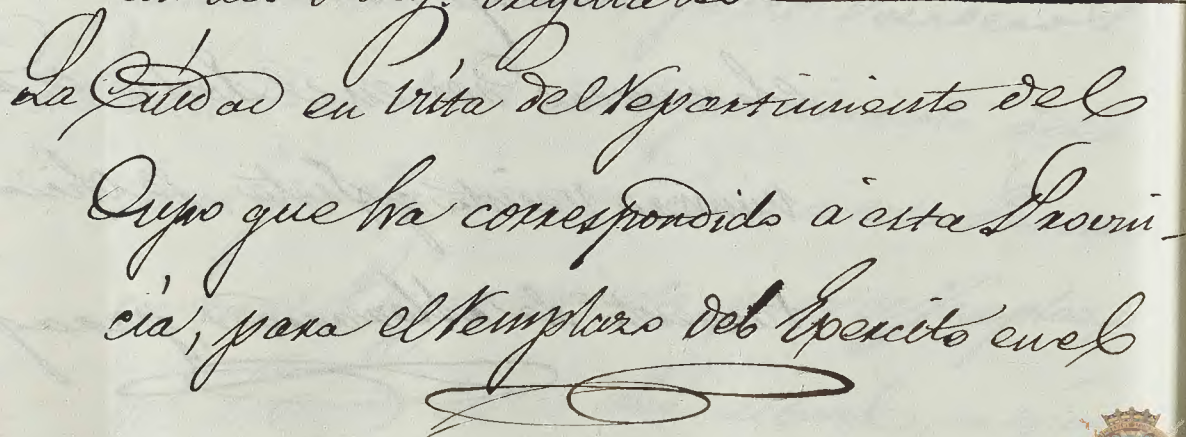 La Ciudad en vista del Repartimiento del
Cupo que ha correspondido à esta Provin-
cia, para el Remplazo del Exercito en el